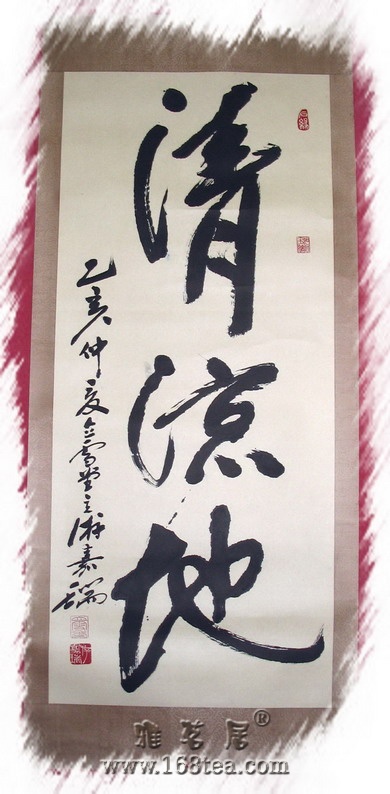 清涼地
乙亥仲夏
主游嘉瑞
雅茗居®
www.168tea.com